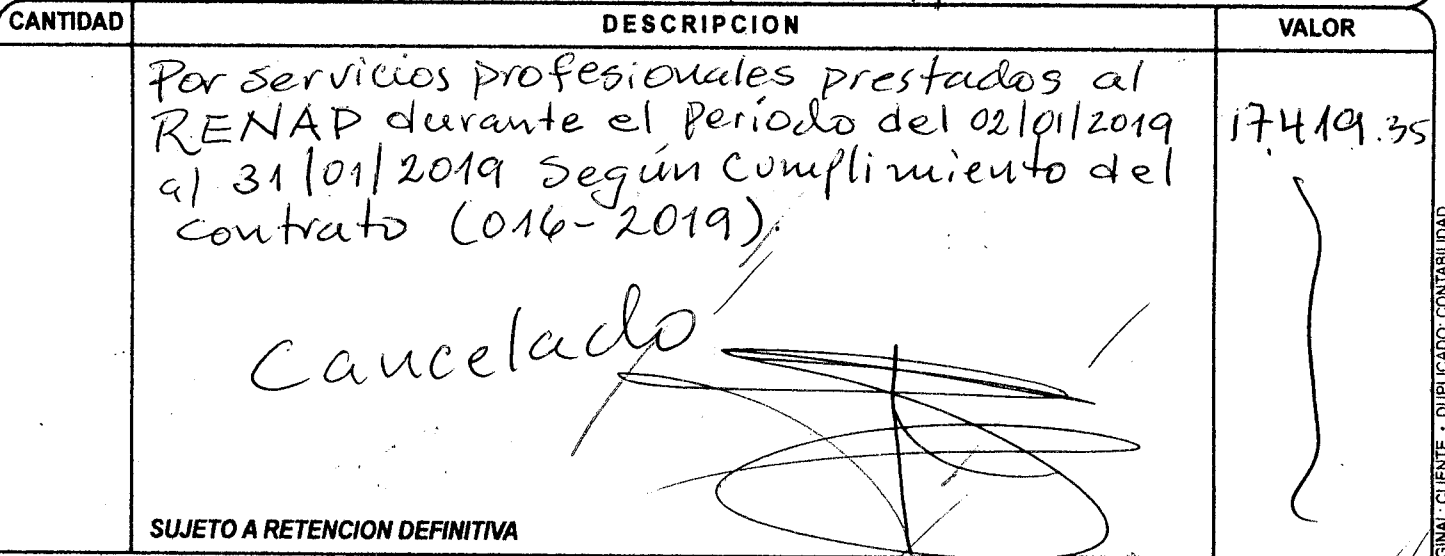 CANTIDAD DESCRIPCION VALOR
Por servicios profesionales prestados al
RENAP durante el Período del 02/01/2019 17,419.35
al 31/01/2019 Según Cumplimiento del
contrato (016-2019).
Cancelado
SUJETO A RETENCION DEFINITIVA
GINAL: CLIENTE • DUPLICADO: CONTABILIDAD